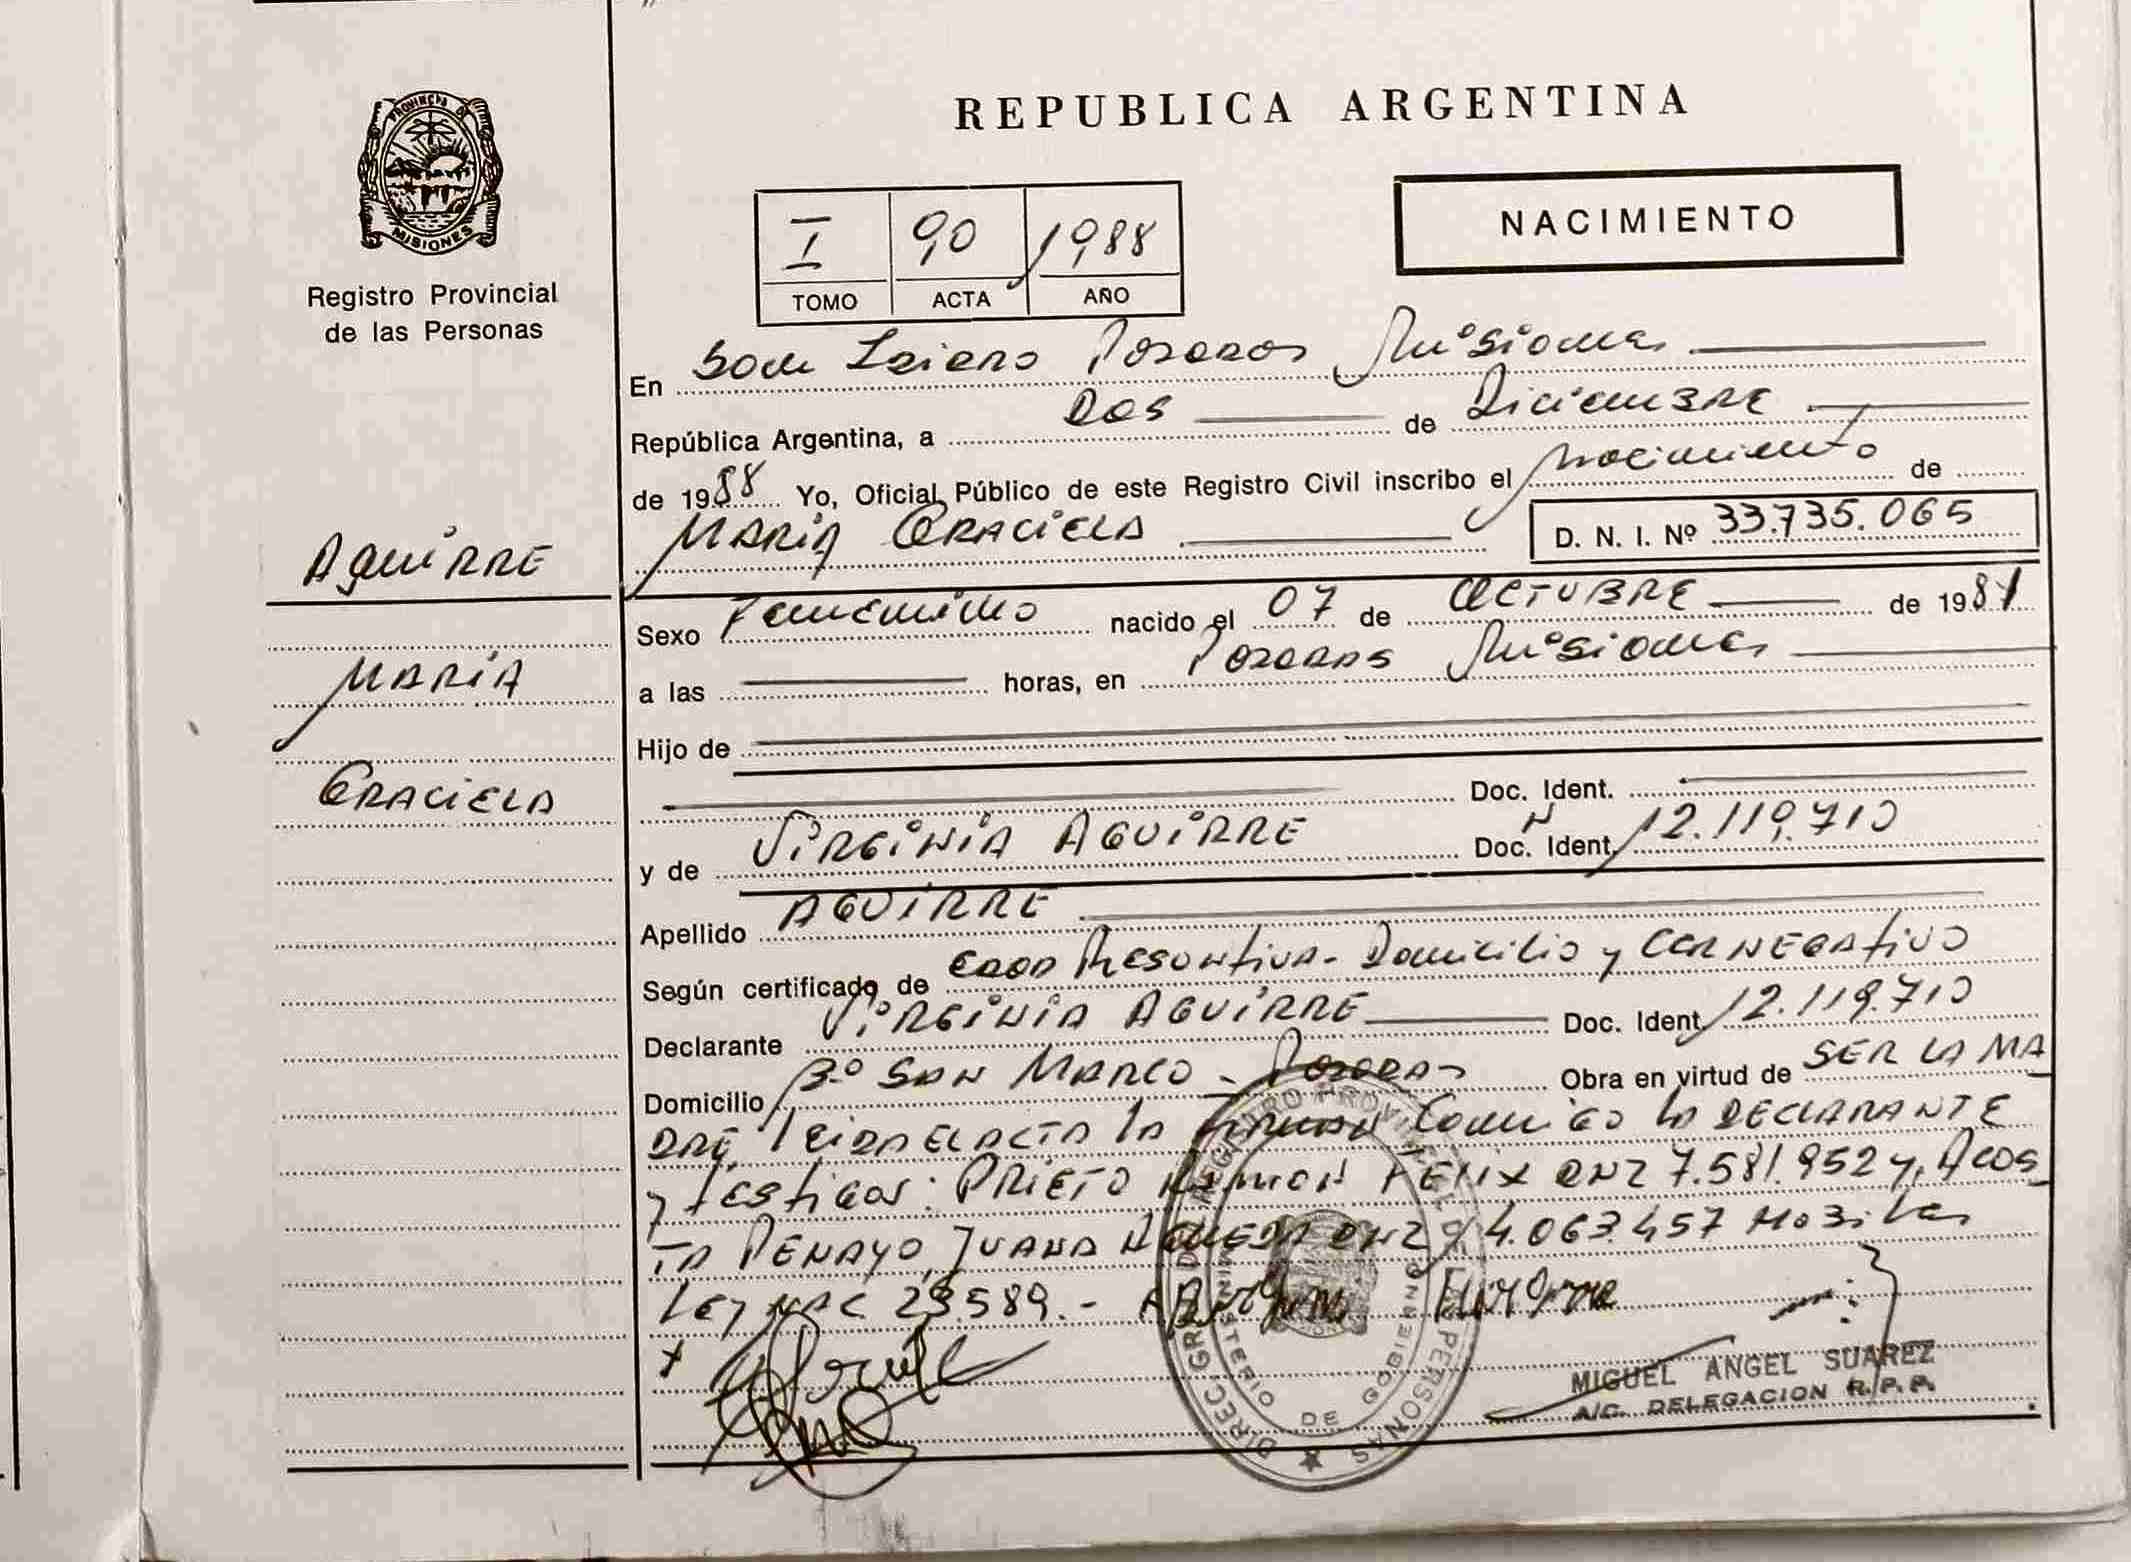 PROVINCIA DE
MISIONES
Registro Provincial
de las Personas
AGUIRRE
MARÍA
GRACIELA
REPUBLICA ARGENTINA
NACIMIENTO
I 90 1988
TOMO ACTA AÑO
En San Isidro Posadas Misiones
República Argentina, a DOS de Diciembre
de 1988 Yo, Oficial Público de este Registro Civil inscribo el nacimiento de
MARÍA GRACIELA D. N. I. Nº 33.735.065
Sexo Femenino nacido el 07 de OCTUBRE de 198
a las horas, en Posadas Misiones
Hijo de
Doc. Ident.
y de VIRGINIA AGUIRRE Doc. Ident. N 12.119.710
Apellido AGUIRRE
Según certificado de EDAD Presuntiva - Domicilio y CER NEGATIVO
Declarante VIRGINIA AGUIRRE Doc. Ident 12.119.710
Domicilio Bº SAN MARCO - Posadas Obra en virtud de SER LA MA
DRE leida EL ACTA la firman Conmigo la DECLARANTE
y testigos: PRIETO RAMON FELIX DNI 7.581.952 y ACOS
TA PENAYO, JUANA DNI 4.063.457 Habiles
Ley NAC 23.589.-
MIGUEL ANGEL SUAREZ
A/C. DELEGACION R. P. P.
DIREC. GRAL. DEL REGISTRO PROVINCIAL DE LAS PERSONAS
MINISTERIO DE GOBIERNO